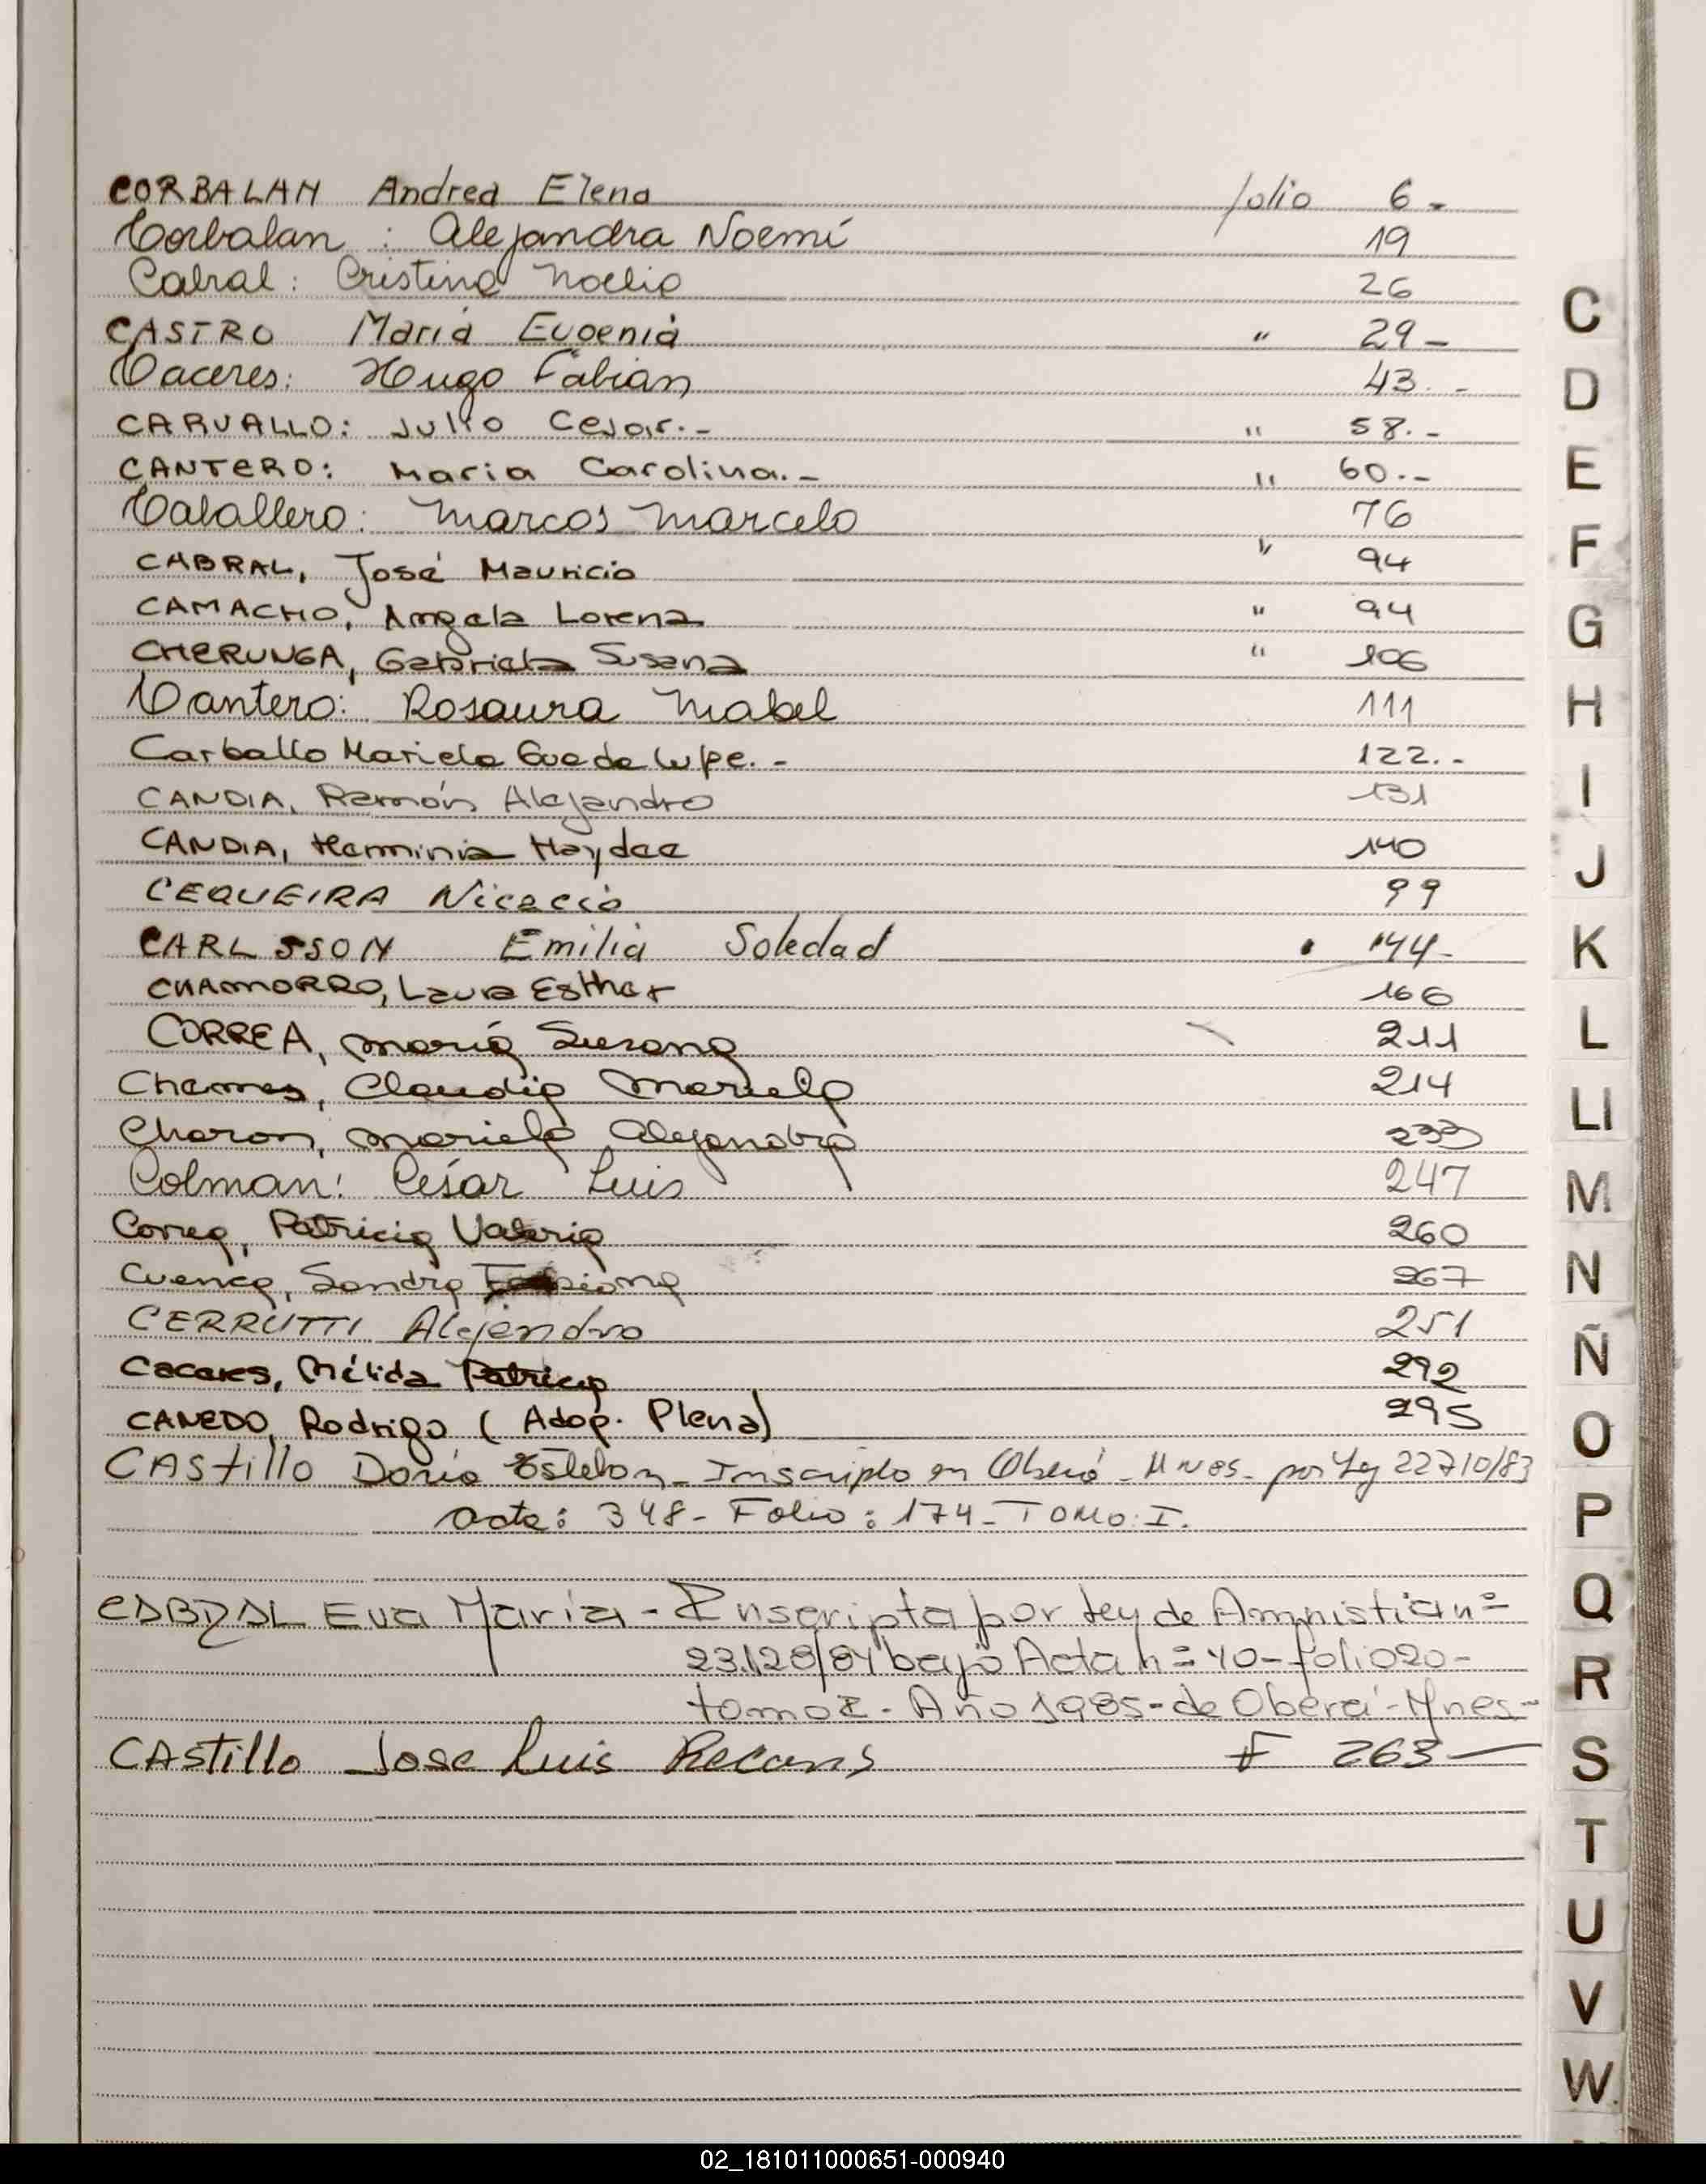 CORBALAN Andrea Elena folio 6-
Corbalan: Alejandra Noemí 19
Cabral: Cristina Noelia 26
CASTRO María Eugenia " 29-
Caceres: Hugo Fabian 43.-
CARVALLO: Julio Cesar.- " 58.-
CANTERO: Maria Carolina.- " 60.-
Caballero: Marcos Marcelo 76
CABRAL, José Mauricio " 94
CAMACHO, Angela Lorena " 94
CHERUNGA, Gabriela Susana " 106
Cantero: Rosaura Mabel 111
Carballo Mariela Guadalupe.- 122.-
CANDIA, Ramón Alejandro 131
CANDIA, Herminia Haydee 140
CEQUEIRA Nicacio 99
CARLSSON Emilia Soledad 144-
CHAMORRO, Laura Esther 166
CORREA, María Susana 211
Chemes, Claudia Mariela 214
Charon, Mariela Alejandra 233
Colman: César Luis 247
Correa, Patricia Valeria 260
Cuenca, Sandra Fabiana 267
CERRUTTI Alejandro 251
Caceres, Mélida Patricia 292
CANEDO, Rodrigo (Adop. Plena) 295
CAStillo Dario Esteban - Inscripto en Oberá - Mnes - por Ley 22710/83
acta: 348- Folio: 174- TOMO: I.
CABRAL Eva María - Inscripta por Ley de Amnistia nº
23.128/84 bajo Acta nº 40- folio 20-
tomo I - Año 1985- de Oberá - Mnes-
CAStillo Jose Luis F 263-
C
D
E
F
G
H
I
J
K
L
Ll
M
N
Ñ
O
P
Q
R
S
T
U
V
W
02_181011000651-000940